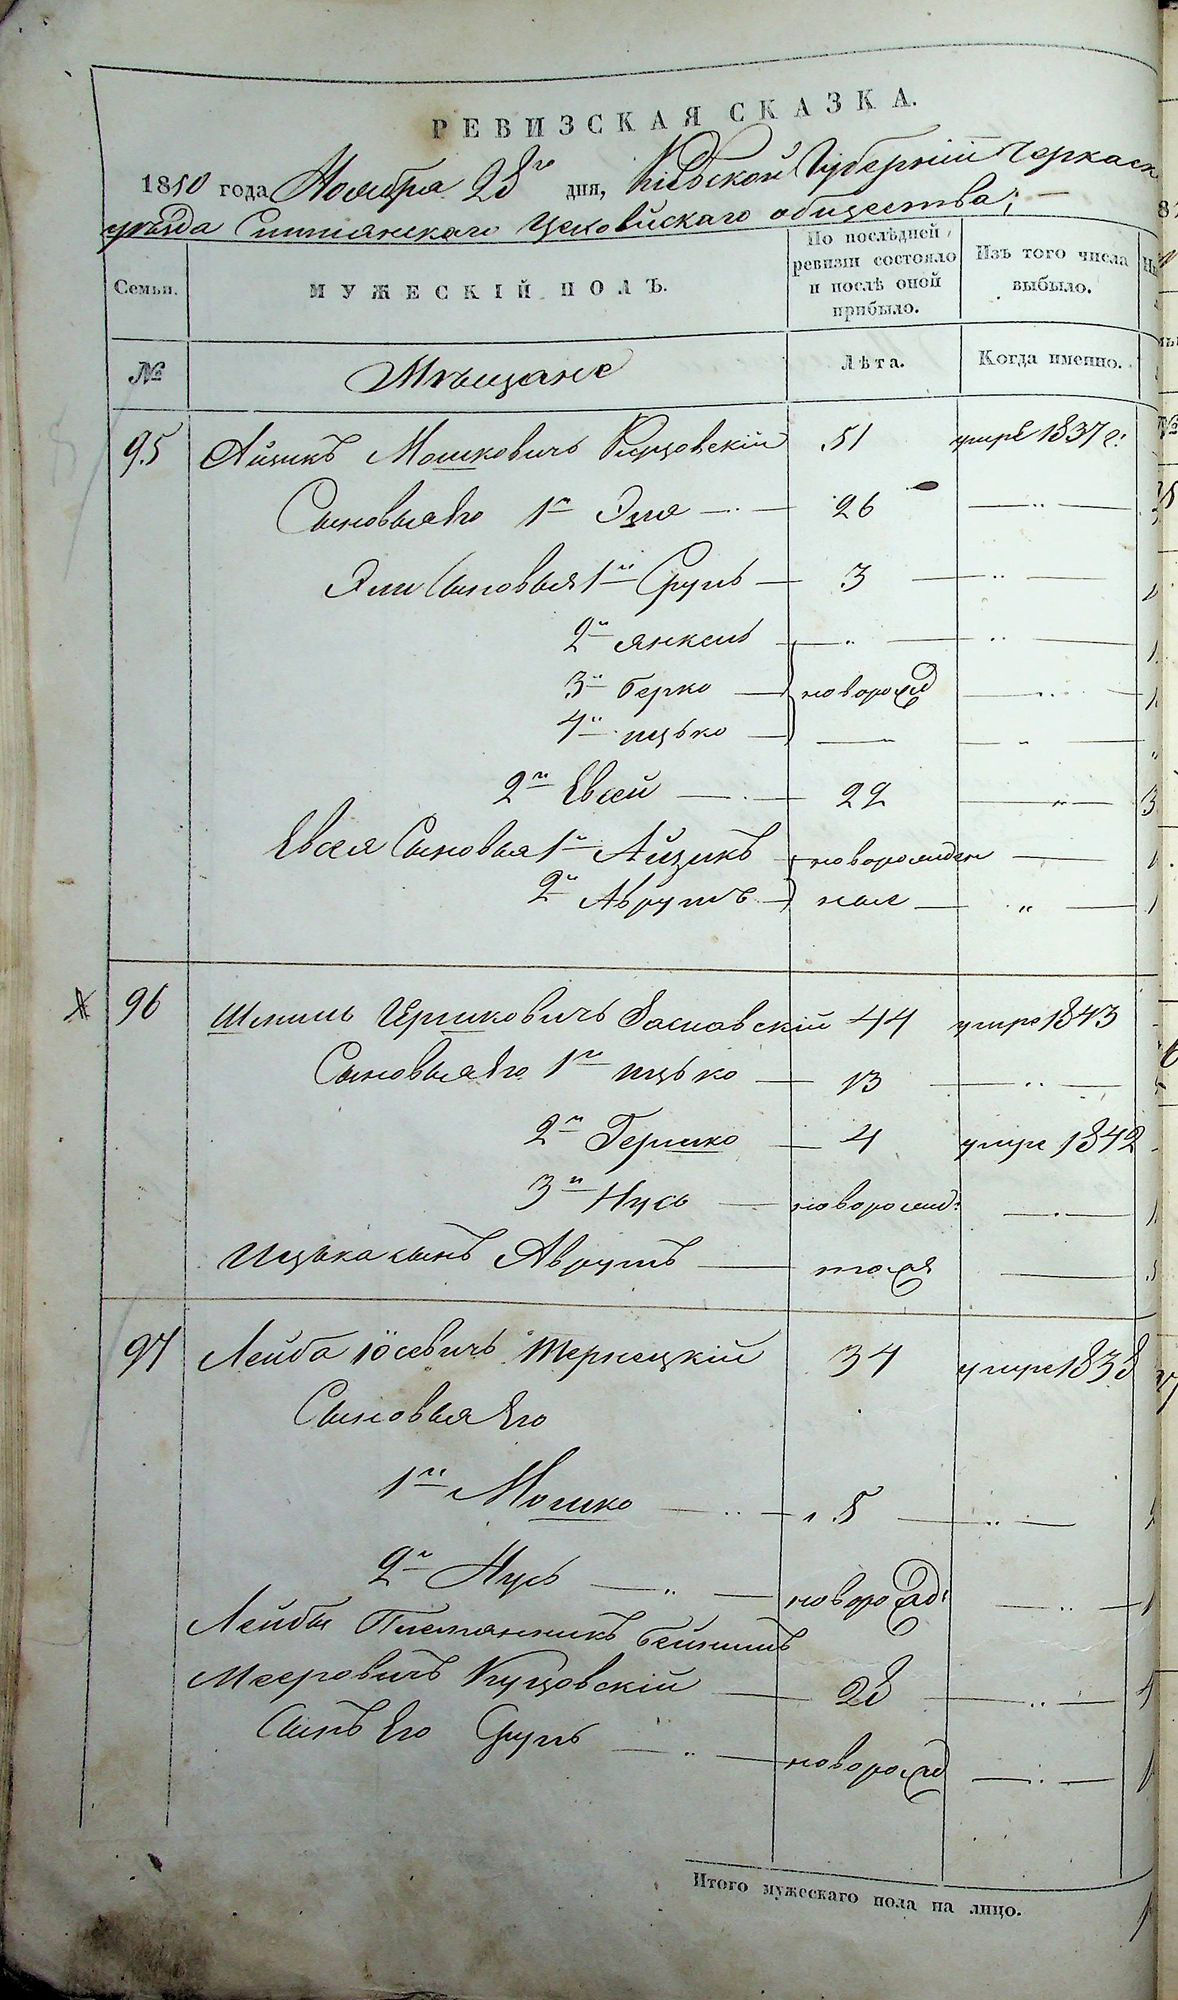 РЕВИЗСКАЯ СКАЗКА.
1850 года Ноября 28го дня, Кіевской Губерніи Черкаск
уѣзда общества;
Семьи.
МУЖЕСКІЙ ПОЛЪ.
По послѣдней
ревизіи состояло
и послѣ оной
прибыло.
Изъ того числа
выбыло.
№
Мѣщане
Лѣта.
Когда именно.
95 Айзикъ Мошковичъ 51 умре 1837 г:
Сыновья Его 1й Эля 26
Эли Сыновья 1й Сруль 3
2й Янкель
3й Берко новорожд
4й Ицько
2й Евсей 22
Евсея Сыновья 1й Айзикъ новорожден
2й Аврумъ ные
96 Шмиль Гершковичъ Заславскій 44 умре 1843
Сыновья Его 1й Ицько 13
2й Гершко 4 умре 1842
3й Нусь новорожд:
Ицька сынъ Аврумъ тожд
97 Лейба Іосевичъ 34 умре 1838
Сыновья Его
1й Мошко 5
2й Нусь новорожд:
Лейбы Племянникъ Бейнишъ
Мееровичъ 28
Сынъ Его Сруль новорожд
Итого мужескаго пола на лицо.